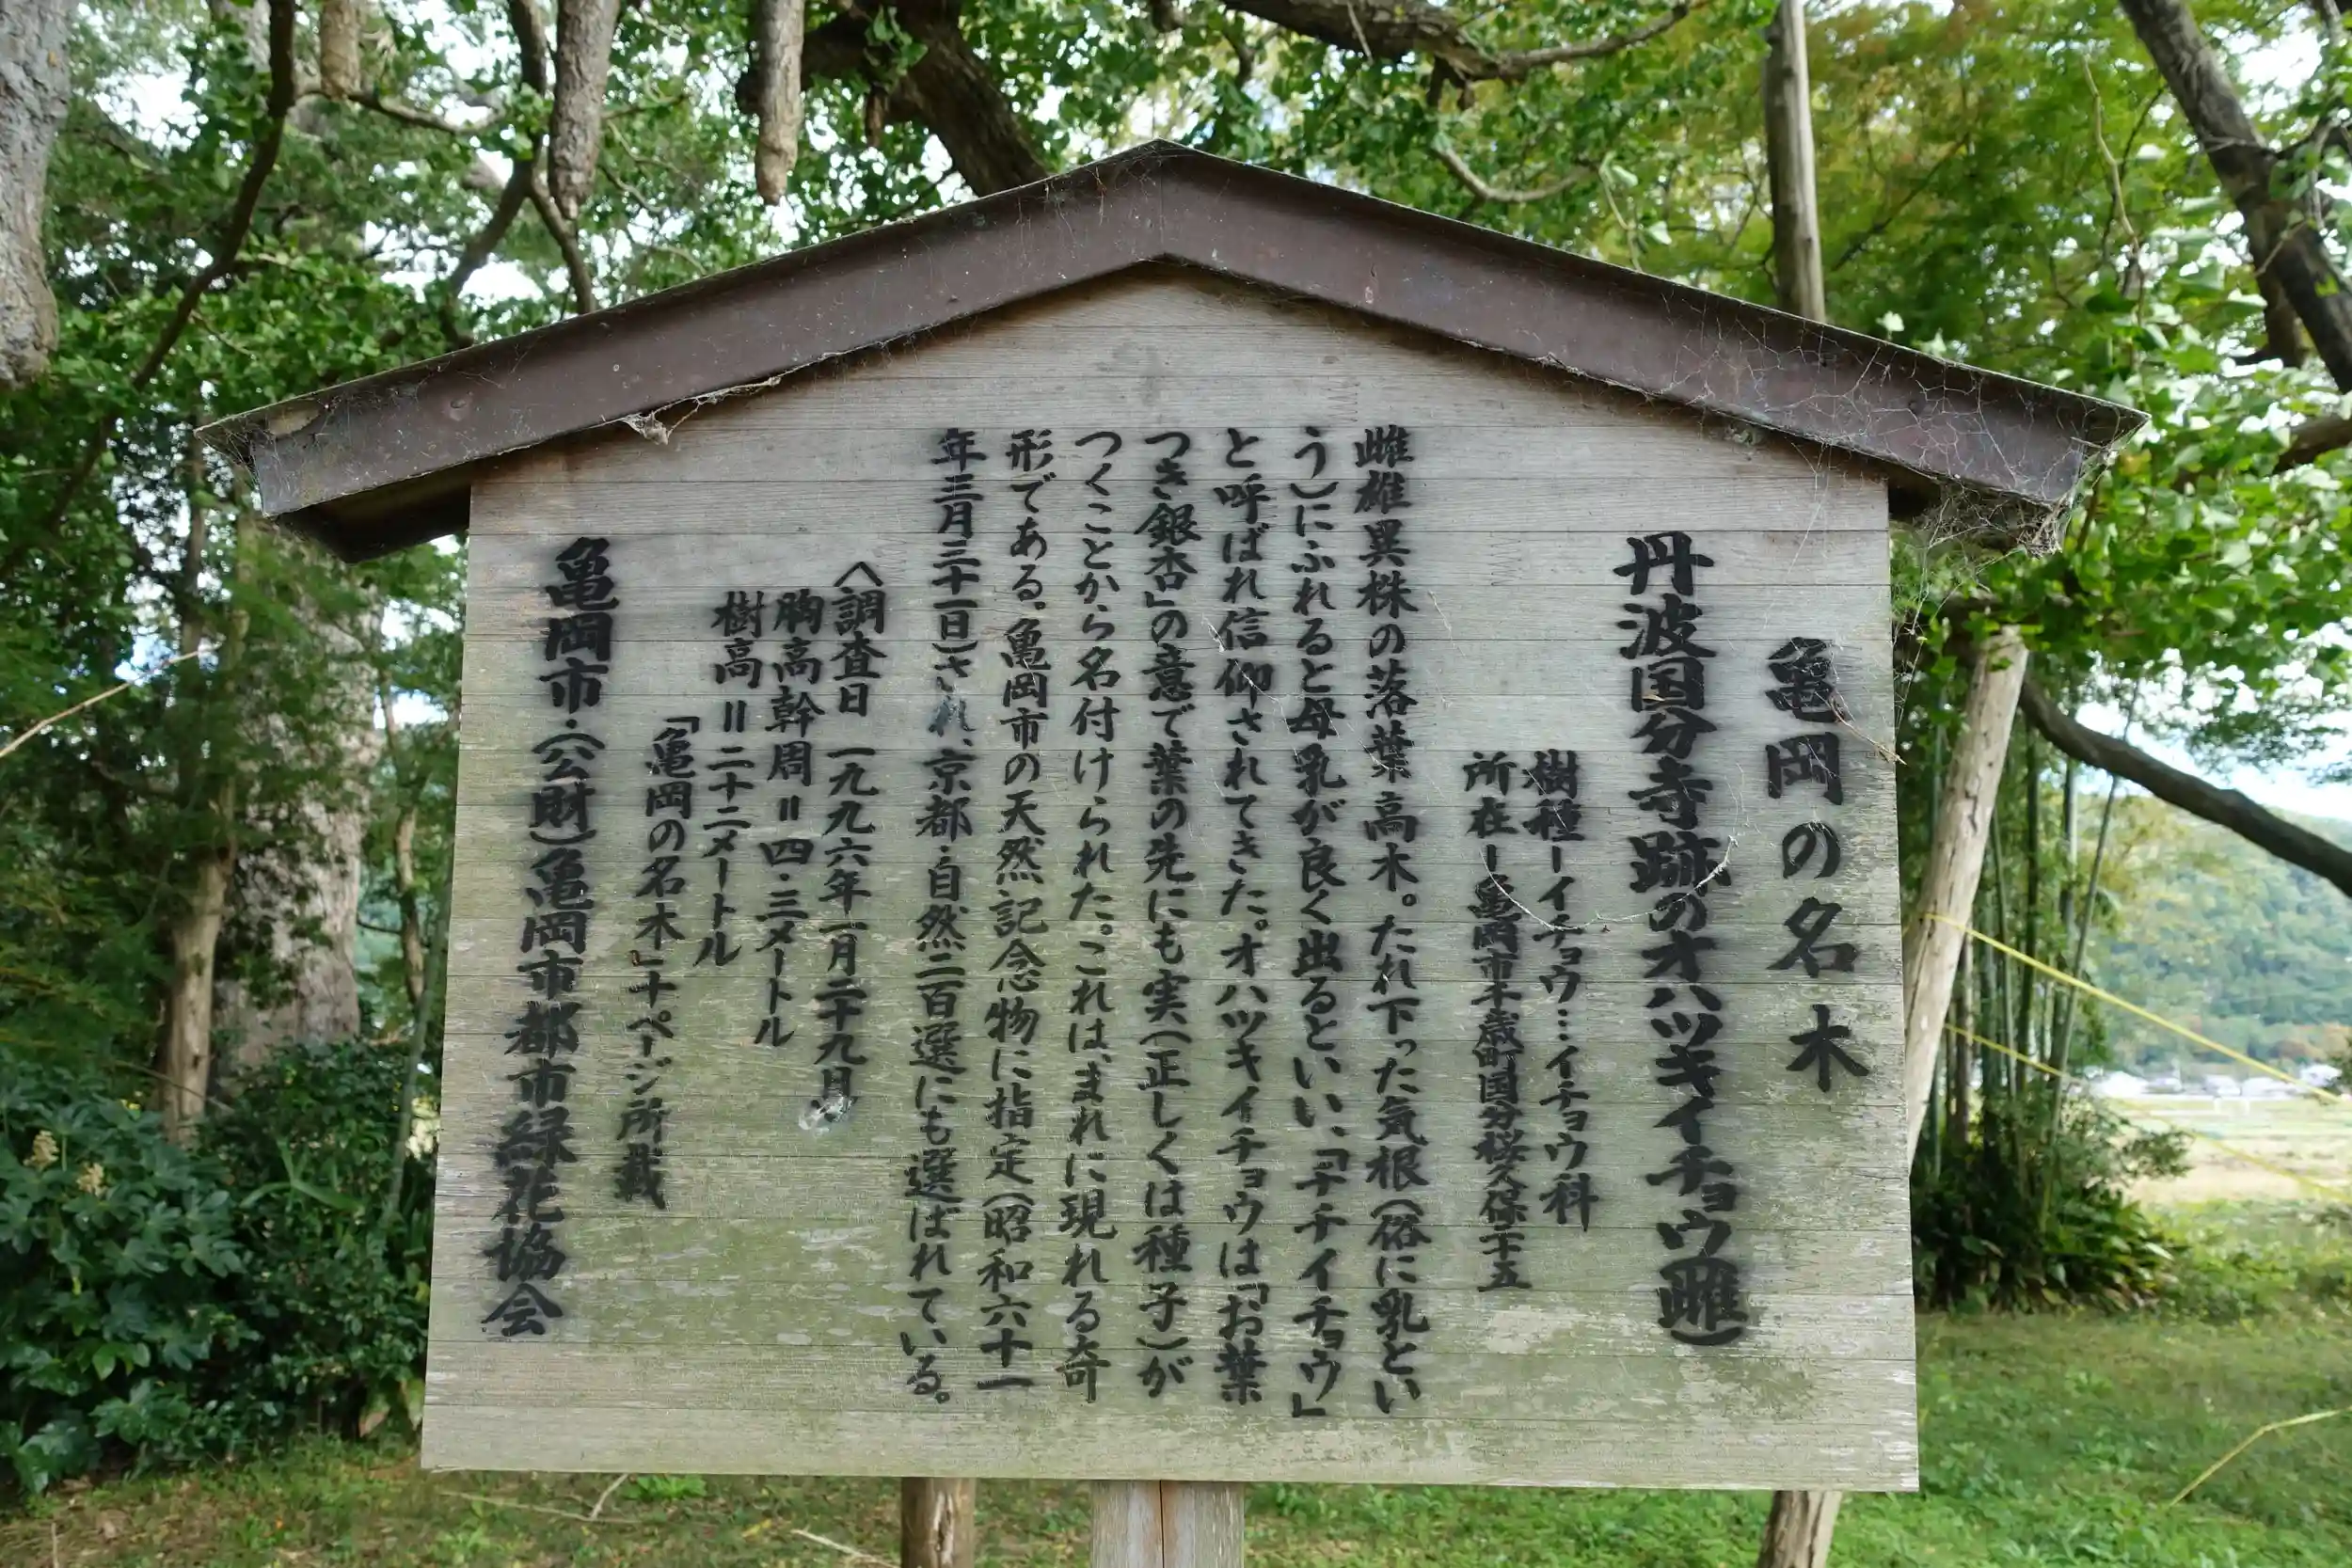 亀岡の名木
丹波国分寺跡のオハツキイチョウ(雌)
樹種ーイチョウ…イチョウ科
所在ー亀岡市千歳町国分桜久保十五
雌雄異株の落葉高木。たれ下った気根(俗に乳とい
う)にふれると母乳が良く出るといい、「チチイチョウ」
と呼ばれ信仰されてきた。オハツキイチョウは「お葉
つき銀杏」の意で葉の先にも実(正しくは種子)が
つくことから名付けられた。これは、まれに現れる奇
形である。亀岡市の天然記念物に指定(昭和六十一
年三月三十一日)され、京都・自然二百選にも選ばれている。
〈調査日 一九九六年一月二十九日〉
胸高幹周=四・三メートル
樹高=二十二メートル
「亀岡の名木」十ページ所載
亀岡市・(公財)亀岡市都市緑花協会